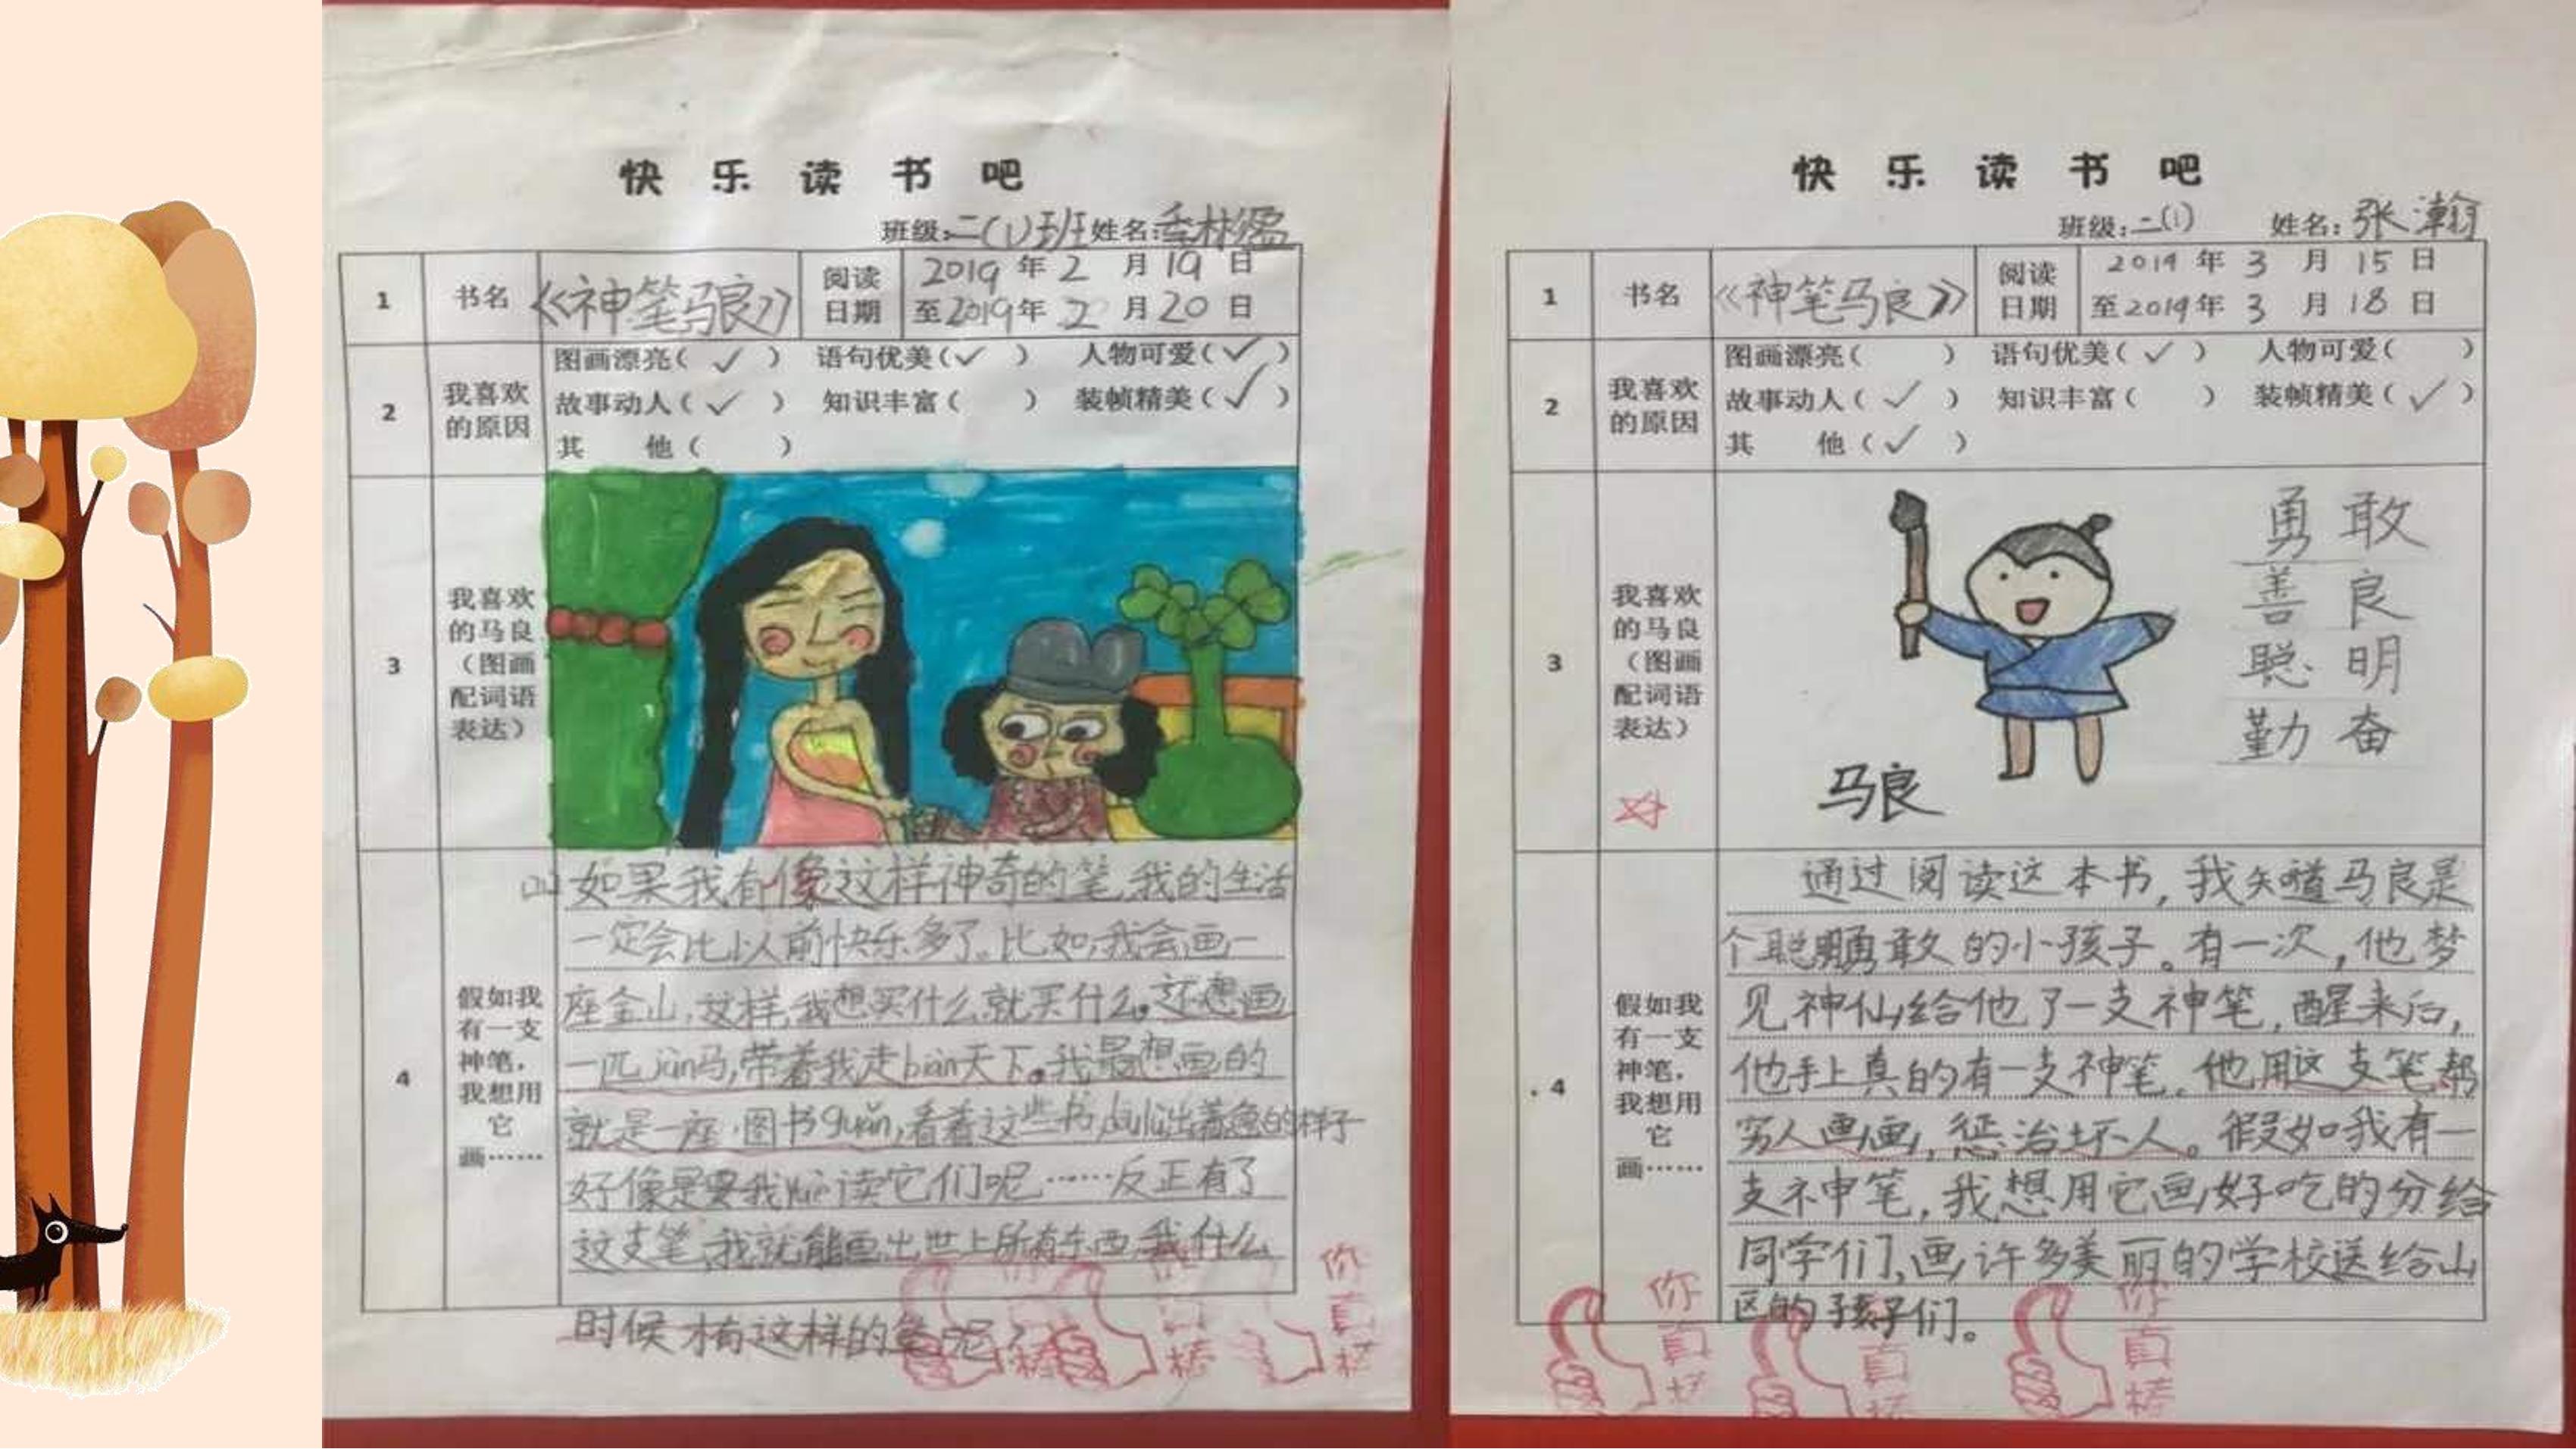 快乐读书吧
班级:二(1)班 姓名:林盈
1 书名 《神笔马良》 阅读日期 2019年2月19日
至2019年2月20日
2 我喜欢的原因 图画漂亮(✓) 语句优美(✓) 人物可爱(✓)
故事动人(✓) 知识丰富( ) 装帧精美(✓)
其 他( )
3 我喜欢的马良(图画配词语表达)
4 假如我有一支神笔,我想用它画……
如果我有像这样神奇的笔,我的生活
一定会比以前快乐多了。比如,我会画一
座金山,这样,我想买什么就买什么。还想画
一匹jùn马,带着我走biàn天下。我最想画的
就是一座图书guǎn,看着这些书,出着急的样子
好像是要我读它们呢……反正有了
这支笔,我就能画出世上所有东西,我什么
时候才有这样的笔呢?
你真棒
你真棒
你真棒
快乐读书吧
班级:二(1) 姓名:张瀚
1 书名 《神笔马良》 阅读日期 2019年3月15日
至2019年3月18日
2 我喜欢的原因 图画漂亮( ) 语句优美(✓) 人物可爱( )
故事动人(✓) 知识丰富( ) 装帧精美(✓)
其 他(✓)
3 我喜欢的马良(图画配词语表达)
勇敢
善良
聪明
勤奋
马良
4 假如我有一支神笔,我想用它画……
通过阅读这本书,我知道马良是
个聪明勇敢的小孩子。有一次,他梦
见神仙给他了一支神笔,醒来后,
他手上真的有一支神笔。他用这支笔帮
穷人画画,惩治坏人。假如我有一
支神笔,我想用它画好吃的分给
同学们,画许多美丽的学校送给山
区的孩子们。
你真棒
你真棒
你真棒